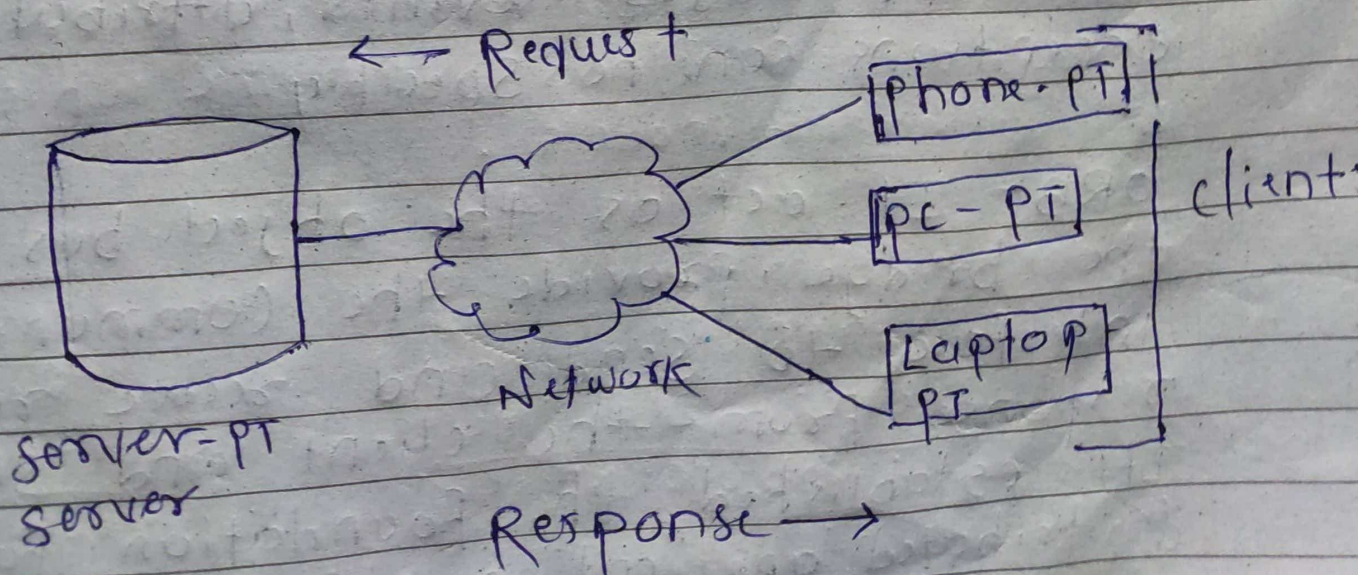 ← Request
Phone-PT
PC-PT
Client
Laptop
PT
Network
Server-PT
Server
Response →